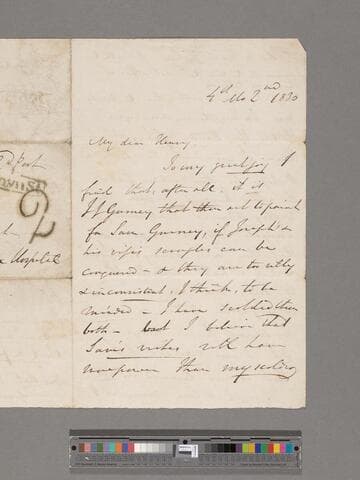 4th Mo 2nd 1830
My dear Henry
To my great joy I
find that, after all, it is
JJ Gurney that thou art to paint
for Sam Gurney, if Joseph &
his wife's scruples can be
conquered - & they are too silly
& inconsistent, I think, to be
minded - I have scolded them
both - but I believe that
Sam's wishes will have
more power than my scolding
Post
Hospital